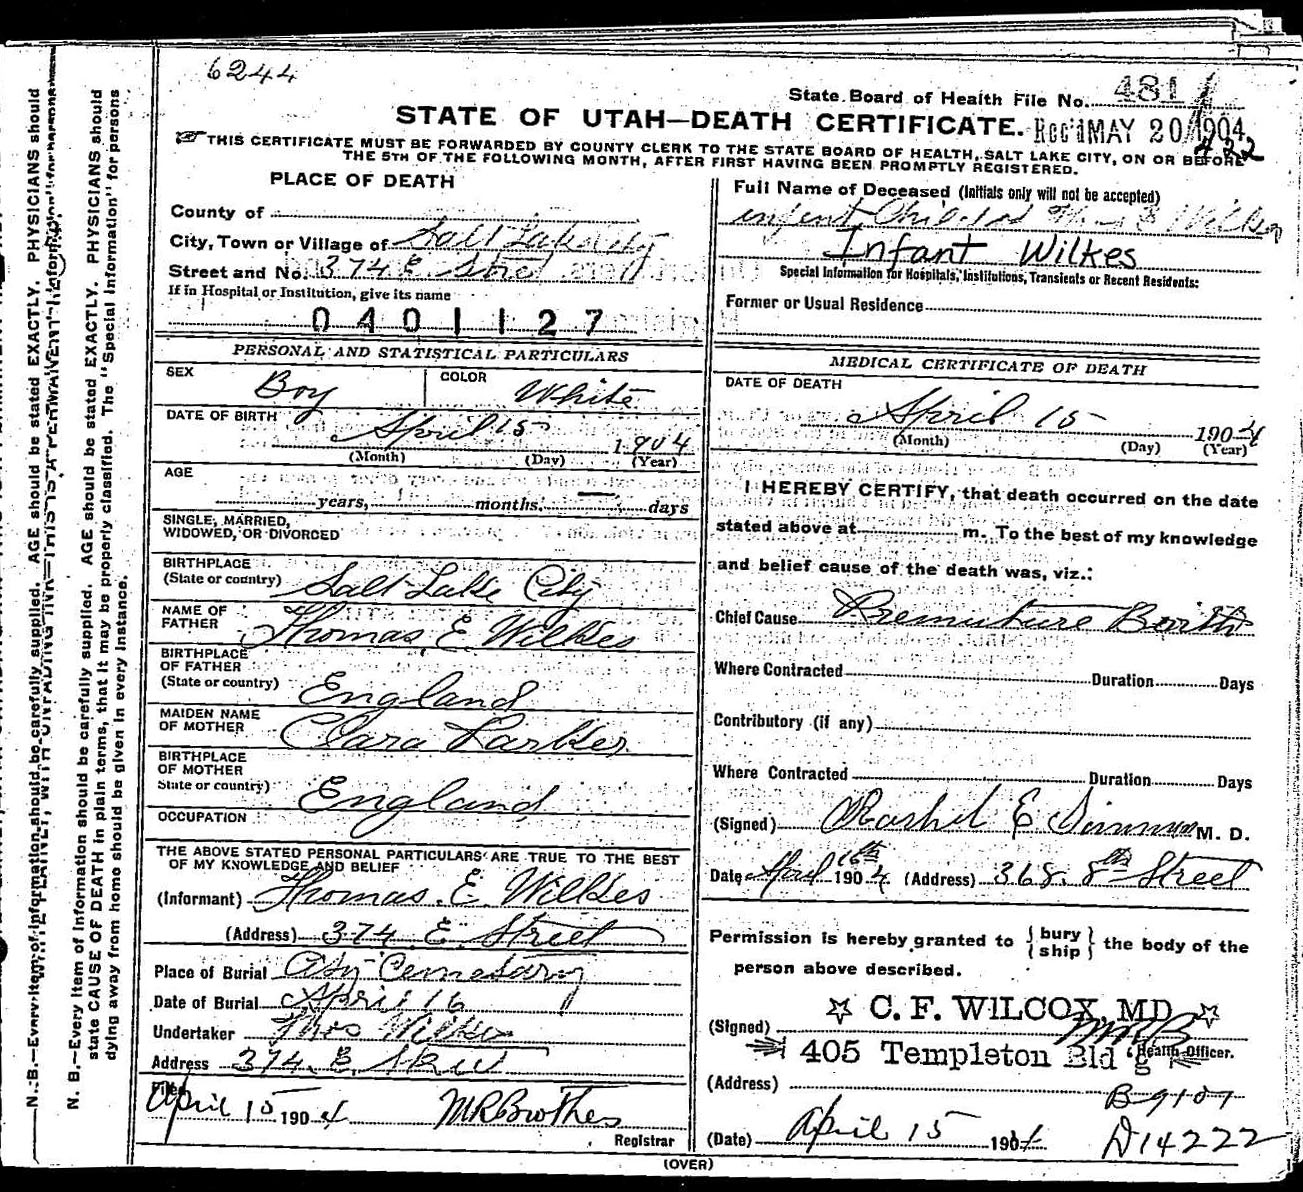 6244
State Board of Health File No. 481
STATE OF UTAH—DEATH CERTIFICATE.
Rec'd MAY 20 1904
422
THIS CERTIFICATE MUST BE FORWARDED BY COUNTY CLERK TO THE STATE BOARD OF HEALTH, SALT LAKE CITY, ON OR BEFORE
THE 5TH OF THE FOLLOWING MONTH, AFTER FIRST HAVING BEEN PROMPTLY REGISTERED.
PLACE OF DEATH
County of
City, Town or Village of Salt Lake City
Street and No. 374 E Street
If in Hospital or Institution, give its name
0401127
Full Name of Deceased (Initials only will not be accepted)
infant Child of
Infant Wilkes
Special Information for Hospitals, Institutions, Transients or Recent Residents:
Former or Usual Residence
PERSONAL AND STATISTICAL PARTICULARS
SEX Boy COLOR White
DATE OF BIRTH
April 15 1904
(Month) (Day) (Year)
AGE
years, months. — days
SINGLE, MARRIED,
WIDOWED, OR DIVORCED
BIRTHPLACE
(State or country) Salt Lake City
NAME OF
FATHER Thomas E. Wilkes
BIRTHPLACE
OF FATHER
(State or country) England
MAIDEN NAME
OF MOTHER Clara Larkes
BIRTHPLACE
OF MOTHER
State or country) England
OCCUPATION
THE ABOVE STATED PERSONAL PARTICULARS ARE TRUE TO THE BEST
OF MY KNOWLEDGE AND BELIEF
(Informant) Thomas. E. Wilkes
(Address) 374 E Street
Place of Burial City Cemetary
Date of Burial April 16
Undertaker Thos Wilkes
Address 374 E Street
Filed
April 15 1904 M R Brothes
Registrar
MEDICAL CERTIFICATE OF DEATH
DATE OF DEATH
April 15 1904
(Month) (Day) (Year)
I HEREBY CERTIFY, that death occurred on the date
stated above at m. To the best of my knowledge
and belief cause of the death was, viz.:
Chief Cause Premuture Borth
Where Contracted Duration Days
Contributory (if any)
Where Contracted Duration Days
(Signed) E M. D.
Date April 16th 1904 (Address) 368. 8th Street
Permission is hereby granted to { bury
ship } the body of the
person above described.
☆ C. F. WILCOX, MD ☆
(Signed)
405 Templeton Bldg Health Officer.
(Address)
B-9107
(Date) April 15 1904 D14222
(OVER)
N. B.—Every item of information should be carefully supplied. AGE should be stated EXACTLY. PHYSICIANS should
N. B.—Every item of information should be carefully supplied. AGE should be stated EXACTLY. PHYSICIANS should
state CAUSE OF DEATH in plain terms, that it may be properly classified. The "Special Information" for persons
dying away from home should be given in every instance.